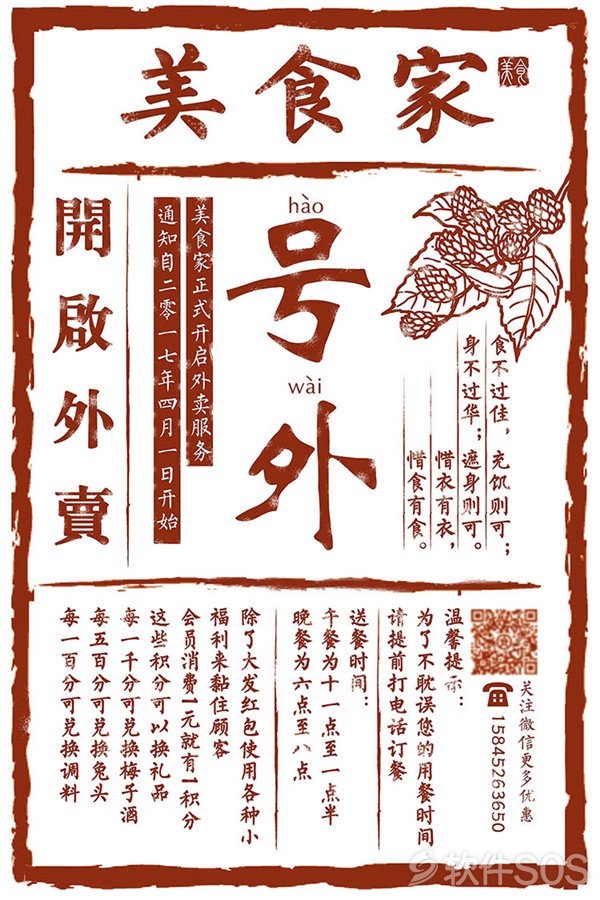 美食家
美食
hào
号
wài
外
食不过佳，充饥则可；
身不过华；遮身则可。
惜衣有衣，
惜食有食。
美食家正式开启外卖服务
通知自二零一七年四月一日开始
開啟外賣
关注微信更多优惠
15845263650
温馨提示：
为了不耽误您的用餐时间
请提前打电话订餐
送餐时间：
午餐为十一点至一点半
晚餐为六点至八点
除了大发红包使用各种小
福利来黏住顾客
会员消费1元就有1积分
这些积分可以换礼品
每一千分可兑换梅子酒
每五百分可兑换兔头
每一百分可兑换调料
软件SOS